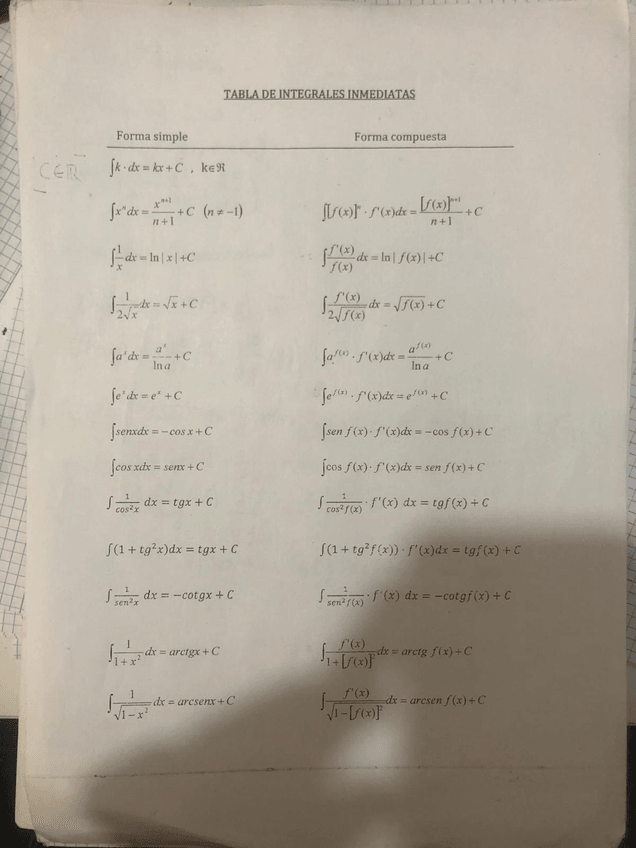 TABLA DE INTEGRALES INMEDIATAS
Forma simple Forma compuesta
C∈ℝ
∫k · dx = kx + C , k∈ℜ
∫xⁿ dx = xⁿ⁺¹/(n+1) + C (n ≠ −1) ∫[f(x)]ⁿ · f'(x)dx = [f(x)]ⁿ⁺¹/(n+1) + C
∫1/x dx = ln | x | +C ∫f'(x)/f(x) dx = ln | f(x) | +C
∫1/(2√x) dx = √x + C ∫f'(x)/(2√f(x)) dx = √f(x) + C
∫aˣ dx = aˣ/ln a + C ∫a^f(x) · f'(x)dx = a^f(x)/ln a + C
∫eˣ dx = eˣ + C ∫e^f(x) · f'(x)dx = e^f(x) + C
∫senxdx = −cos x + C ∫sen f(x) · f'(x)dx = −cos f(x) + C
∫cos xdx = senx + C ∫cos f(x) · f'(x)dx = sen f(x) + C
∫1/cos²x dx = tgx + C ∫1/cos²f(x) · f'(x) dx = tgf(x) + C
∫(1 + tg²x)dx = tgx + C ∫(1 + tg²f(x)) · f'(x)dx = tgf(x) + C
∫1/sen²x dx = −cotgx + C ∫1/sen²f(x) · f'(x) dx = −cotgf(x) + C
∫1/(1+x²) dx = arctgx + C ∫f'(x)/(1+[f(x)]²) dx = arctg f(x) + C
∫1/√(1−x²) dx = arcsenx + C ∫f'(x)/√(1−[f(x)]²) dx = arcsen f(x) + C